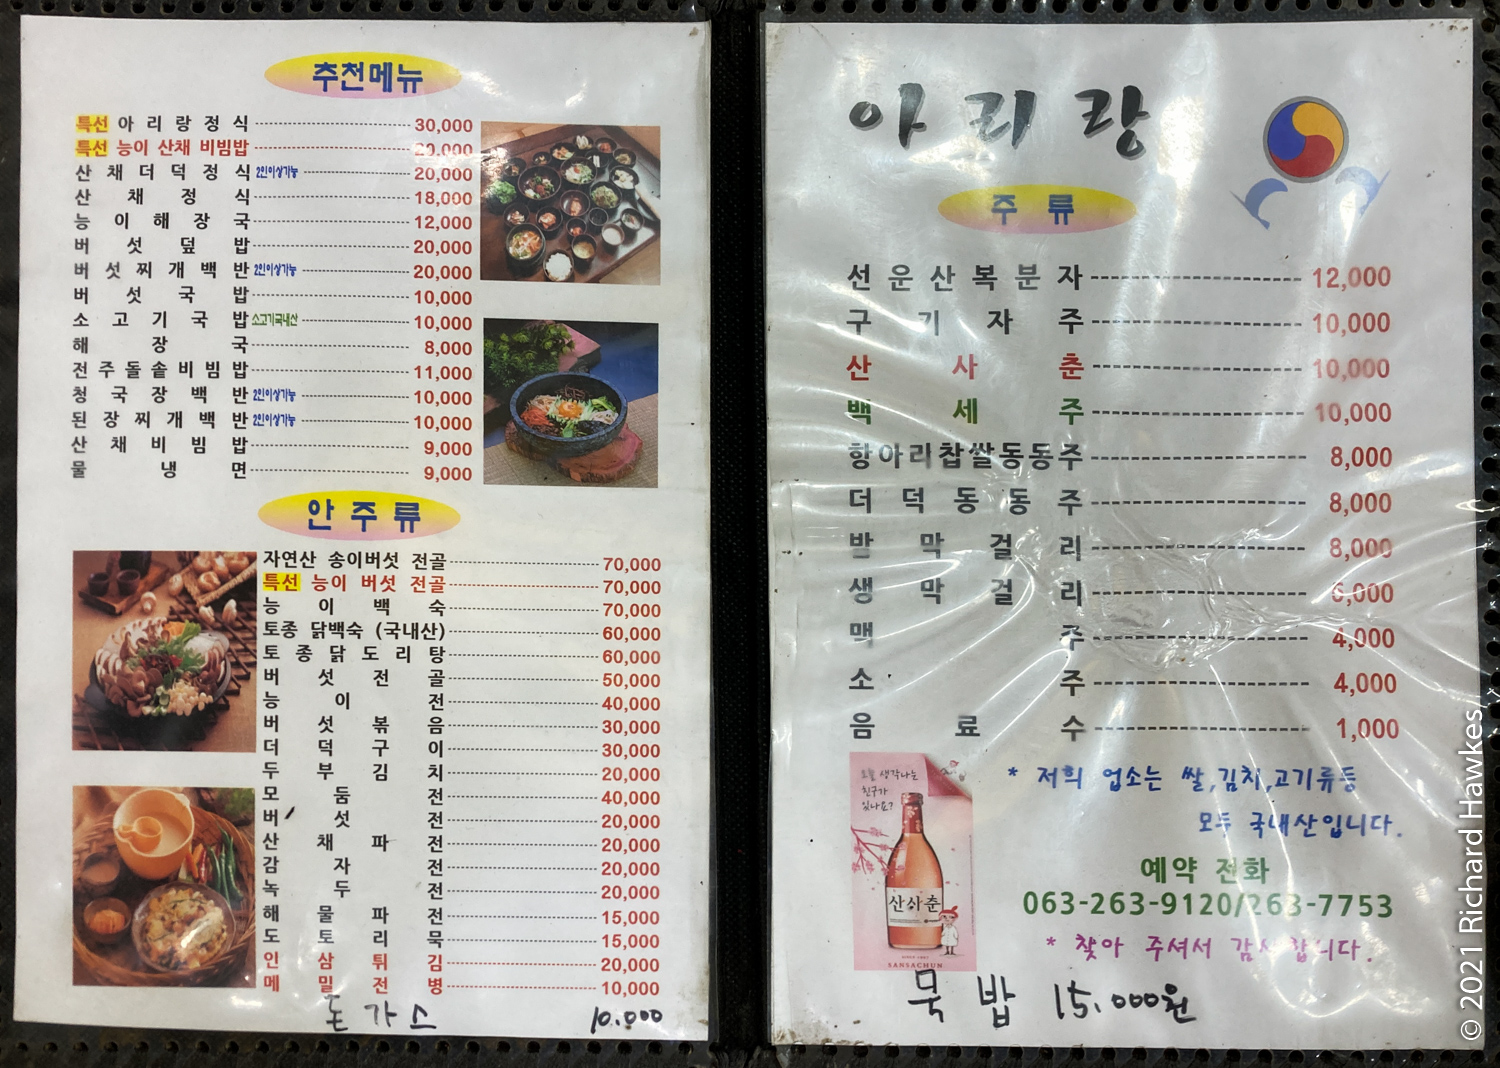 추천메뉴
특선 아리랑정식 30,000
특선 능이 산채 비빔밥 20,000
산채더덕정식 2인이상가능 20,000
산채정식 18,000
능이해장국 12,000
버섯덮밥 20,000
버섯찌개백반 2인이상가능 20,000
버섯국밥 10,000
소고기국밥 소고기국내산 10,000
해장국 8,000
전주돌솥비빔밥 11,000
청국장백반 2인이상가능 10,000
된장찌개백반 2인이상가능 10,000
산채비빔밥 9,000
물냉면 9,000
안주류
자연산 송이버섯 전골 70,000
특선 능이 버섯 전골 70,000
능이백숙 70,000
토종 닭백숙 (국내산) 60,000
토종닭도리탕 60,000
버섯전골 50,000
능이전 40,000
버섯볶음 30,000
더덕구이 30,000
두부김치 20,000
모둠전 40,000
버섯전 20,000
산채파전 20,000
감자전 20,000
녹두전 20,000
해물파전 15,000
도토리묵 15,000
인삼튀김 20,000
메밀전병 10,000
돈가스 10.000
아리랑
주류
선운산복분자 12,000
구기자주 10,000
산사춘 10,000
백세주 10,000
항아리찹쌀동동주 8,000
더덕동동주 8,000
밤막걸리 8,000
생막걸리 6,000
맥주 4,000
소주 4,000
음료수 1,000
오늘 생각나는
친구가
있나요?
산사춘
SANSACHUN
* 저희 업소는 쌀,김치,고기류등
모두 국내산입니다.
예약 전화
063-263-9120/263-7753
* 찾아 주셔서 감사합니다.
묵밥 15.000원
© 2021 Richard Hawkes